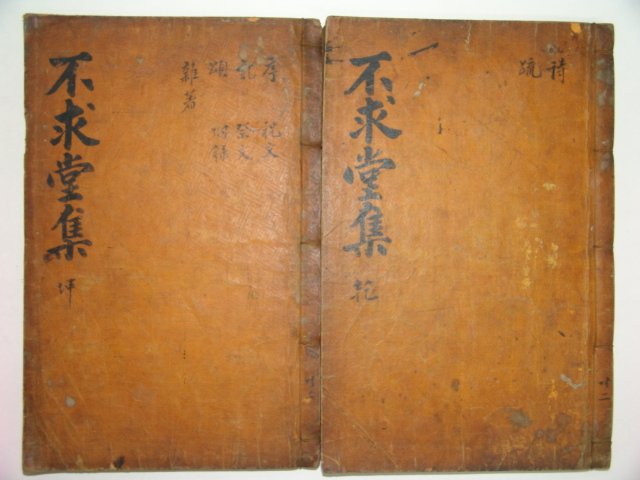 不求堂集 乾
詩
疏
不求堂集 坤
序 祝文
記 祭文
頌 附錄
雜著